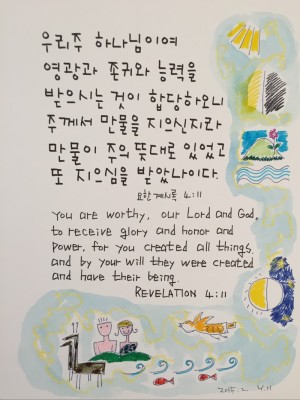 우리주 하나님이여
영광과 존귀와 능력을
받으시는 것이 합당하오니
주께서 만물을 지으신지라
만물이 주의 뜻대로 있었고
또 지으심을 받았나이다.
요한 계시록 4:11
You are worthy, our Lord and God,
to receive glory and honor and
power, for you created all things,
and by your will they were created
and have their being.
REVELATION 4:11